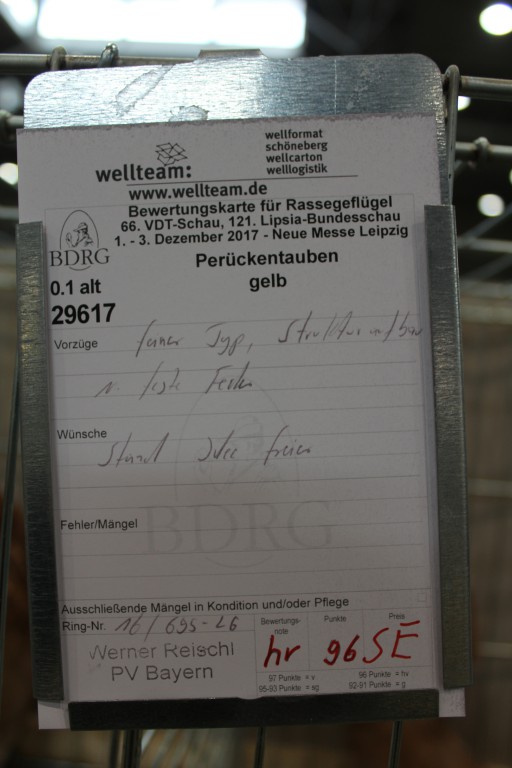 wellteam:
wellformat
schöneberg
wellcarton
welllogistik
www.wellteam.de
BDRG
Bewertungskarte für Rassegeflügel
66. VDT-Schau, 121. Lipsia-Bundesschau
1. - 3. Dezember 2017 - Neue Messe Leipzig
Perückentauben
gelb
0.1 alt
29617
Vorzüge feiner Typ, Struktur
feste Feder
Wünsche
Stand freier
BDRG
Fehler/Mängel
Ausschließende Mängel in Kondition und/oder Pflege
Ring-Nr. 16/695-26
Werner Reischl
PV Bayern
Bewertungs-
note
hr
Punkte
96
Preis
SE
97 Punkte = v
96 Punkte = hv
95-93 Punkte = sg
92-91 Punkte = g